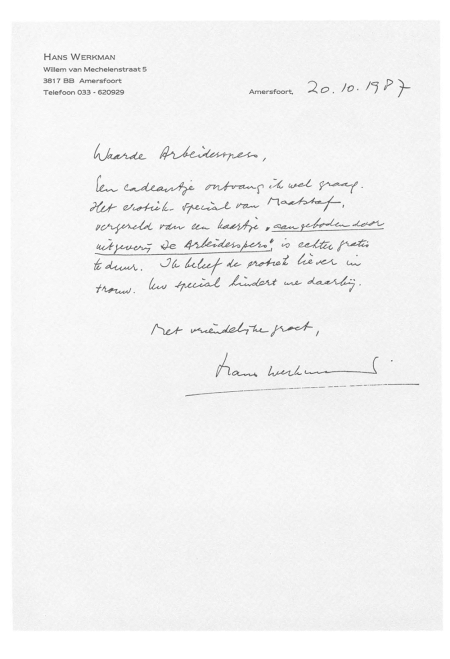 HANS WERKMAN
Willem van Mechelenstraat 5
3817 BB Amersfoort
Telefoon 033 - 620929
Amersfoort, 20.10.1987
Waarde Arbeiderspers,
Een cadeautje ontvang ik wel graag.
Het erotiek-special van Maatstaf,
vergezeld van een kaartje "aangeboden door
uitgeverij De Arbeiderspers", is echter gratis
te duur. Ik beleef de erotiek liever in
trouw. Uw special hindert me daarbij.
Met vriendelijke groet,
Hans Werkman